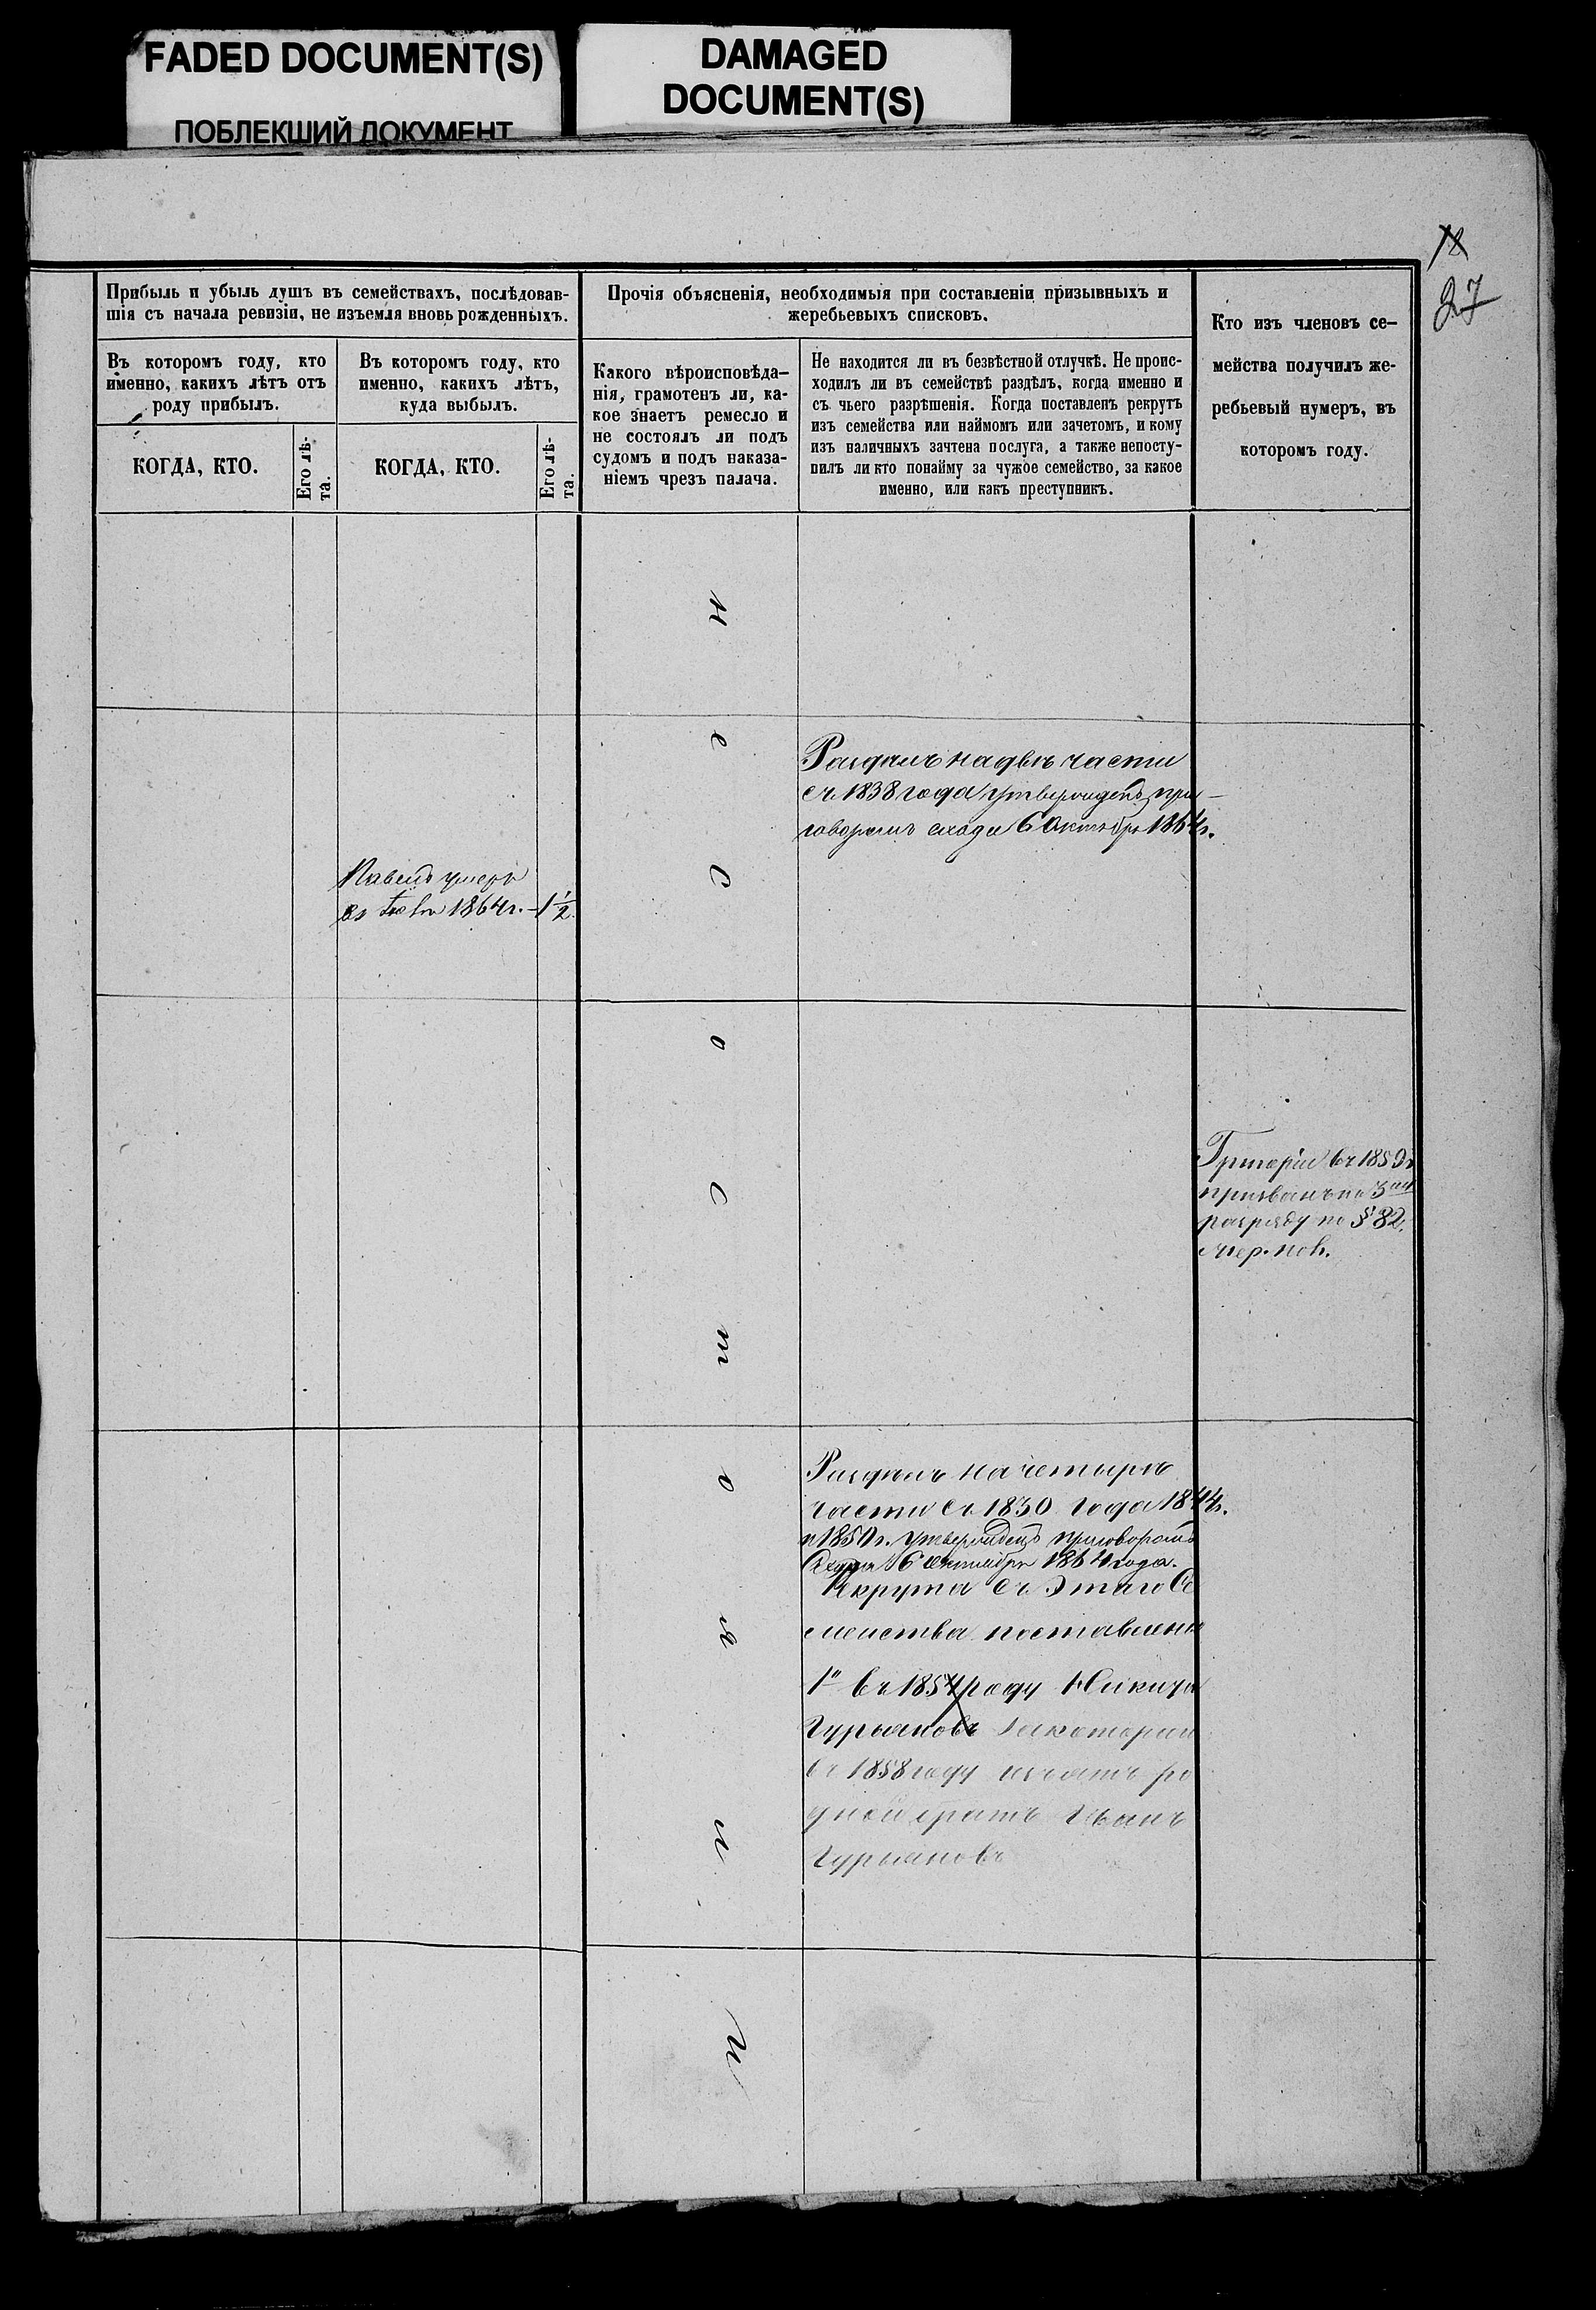 FADED DOCUMENT(S)
ПОБЛЕКШИЙ ДОКУМЕНТ
DAMAGED
DOCUMENT(S)
18
27
Прибыль и убыль душъ въ семействахъ, послѣдовав-
шія съ начала ревизіи, не изъемля вновь рожденныхъ.
Въ которомъ году, кто
именно, какихъ лѣтъ отъ
роду прибылъ.
КОГДА, КТО.
Его лѣ-
та.
Въ которомъ году, кто
именно, какихъ лѣтъ,
куда выбылъ.
КОГДА, КТО.
Его лѣ-
та.
Прочія объясненія, необходимыя при составленіи призывныхъ и
жеребьевыхъ списковъ.
Какого вѣроисповѣда-
нія, грамотенъ ли, ка-
кое знаетъ ремесло и
не состоялъ ли подъ
судомъ и подъ наказа-
ніемъ чрезъ палача.
Не находится ли въ безвѣстной отлучкѣ. Не проис-
ходилъ ли въ семействѣ раздѣлъ, когда именно и
съ чьего разрѣшенія. Когда поставленъ рекрутъ
изъ семейства или наймомъ или зачетомъ, и кому
изъ наличныхъ зачтена послуга, а также непосту-
пилъ ли кто понайму за чужое семейство, за какое
именно, или какъ преступникъ.
Кто изъ членовъ се-
мейства получилъ же-
ребьевый нумеръ, въ
которомъ году.
Н е с о с т о я л и
Раздѣлъ на двѣ части
съ 1838 года утвержденъ при-
говоромъ схода 6 Октября 1864 г.
Павелъ умеръ
въ 1864 г. - 1 1/2
Григорій въ 1859 г.
призванъ по 3 му
разряду по § 82.
Раздѣлъ на четыре
части съ 1830 года 1844 г.
и 1850 г. утвержденъ приговоромъ
схода 6 Октября 1864 года.
Рекрута съ Этаго Се
мейства поставлены
1й въ 1854 году Никита
Гурьяновъ
въ 1858 году ро
дной братъ Иванъ
Гурьяновъ